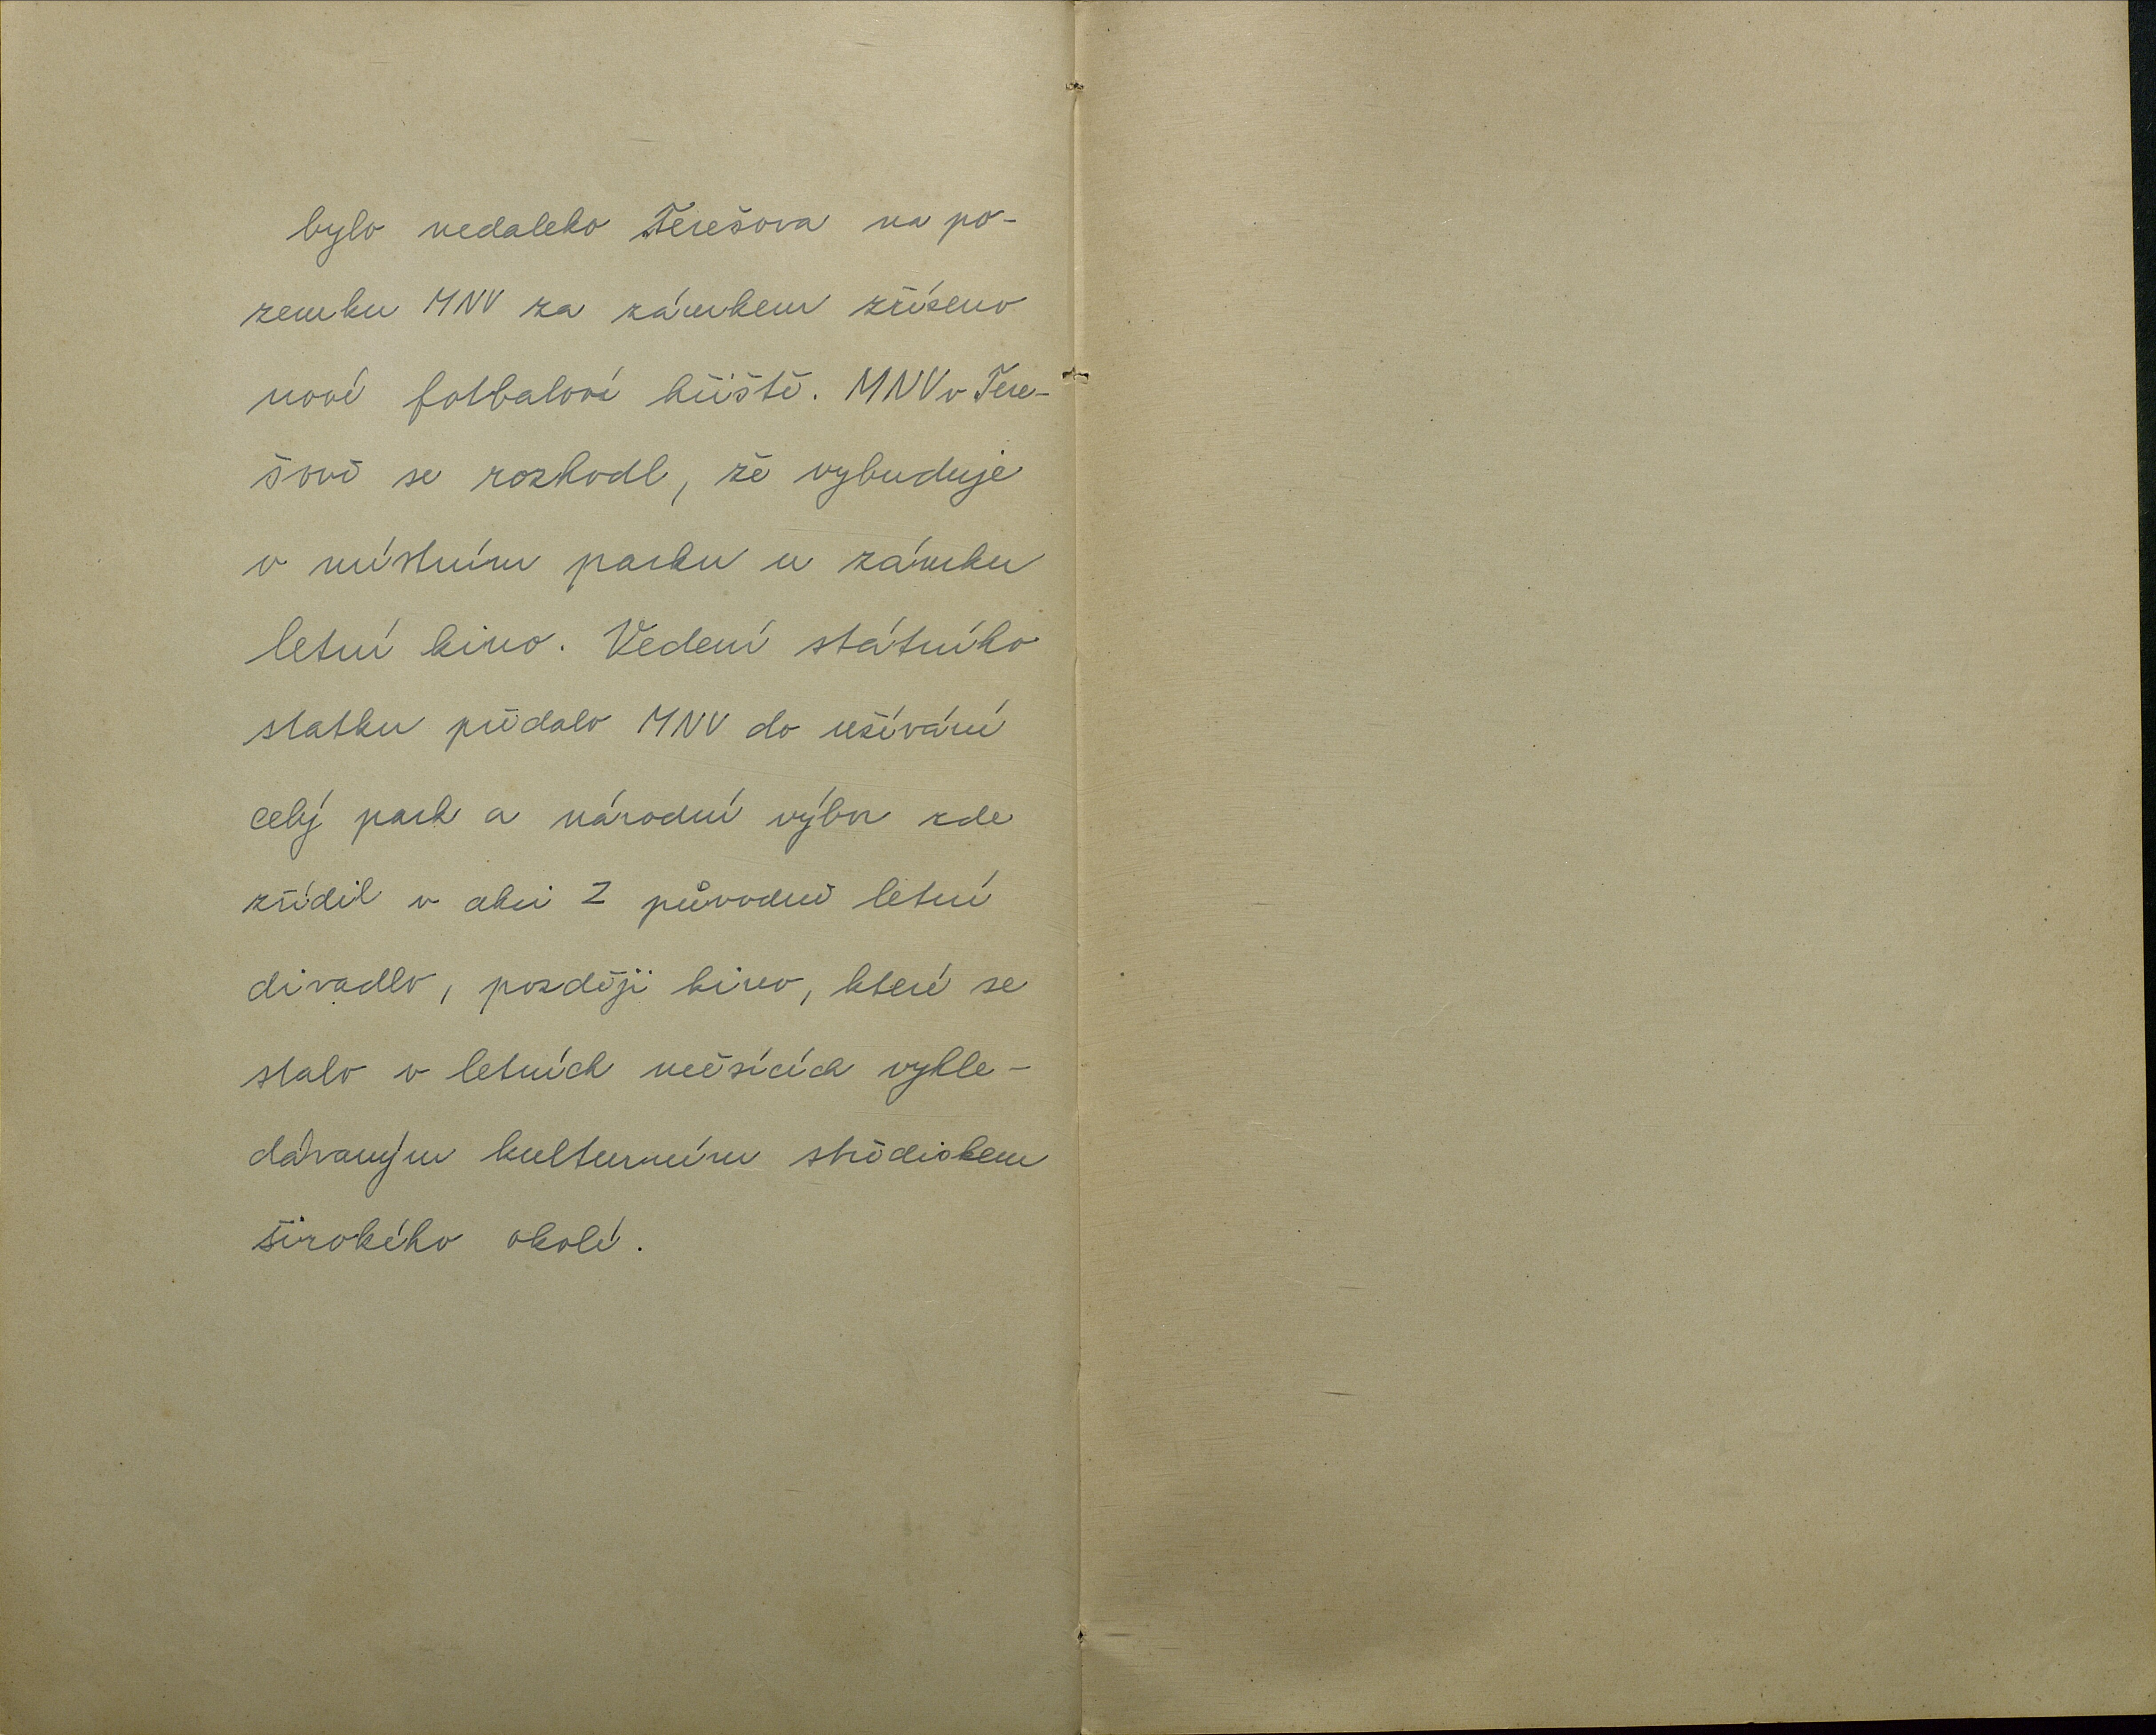 bylo nedaleko Terešova na po-
zemku MNV za zámkem zřízeno
nové fotbalové hřiště. MNV v Tere-
šově se rozhodl, že vybuduje
v místním parku u zámku
letní kino. Vedení státního
statku předalo MNV do užívání
celý park a národní výbor zde
zřídil v akci Z původně letní
divadlo, později kino, které se
stalo v letních měsících vyhle-
dávaným kulturním střediskem
širokého okolí.